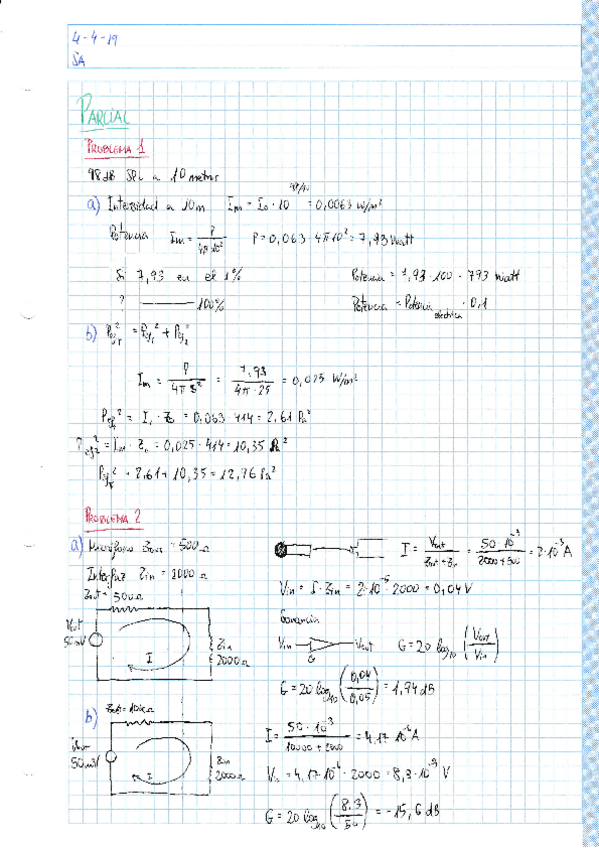 4-4-19
SA
PARCIAL
PROBLEMA 1
98 dB SPL a 10 metros
a) Intensidad a 10m Im = Io · 10^98/10 = 0,0063 W/m²
Potencia Im = P/4π10² P = 0,063 · 4π10² = 7,93 Watt
Si 7,93 en el 1% Potencia = 7,93 · 100 = 793 watt
? —— 100% Potencia = Potencia eléctrica · 0,1
b) Pef_T² = Pef_1² + Pef_2²
Im = P/4π5² = 7,93/4π·25 = 0,025 W/m²
Pef_1² = I₁ · Zo = 0,063 · 414 = 2,61 Pa²
Pef_2² = Im · Zo = 0,025 · 414 = 10,35 Pa²
Pef_T² = 2,61 + 10,35 = 12,96 Pa²
PROBLEMA 2
a) Micrófono Zout = 500Ω I = Vout/Zout + Zin = 50·10^-3/2000 + 500 = 2·10^-5 A
Interfaz Zin = 2000Ω
Zout = 500Ω Vin = I · Zin = 2·10^-5 · 2000 = 0,04 V
Vout
50mV I Zin
2000Ω
Ganancia
Vin G Vout G = 20 log₁₀ (Vout/Vin)
G = 20 log₁₀ (0,04/0,05) = 1,94 dB
b) Zout = 10kΩ
Vout
50mV I Zin
2000Ω
I = 50·10^-3/10000 + 2000 = 4,17·10^-6 A
Vin = 4,17·10^-6 · 2000 = 8,3·10^-3 V
G = 20 log₁₀ (8,3/50) = -15,6 dB